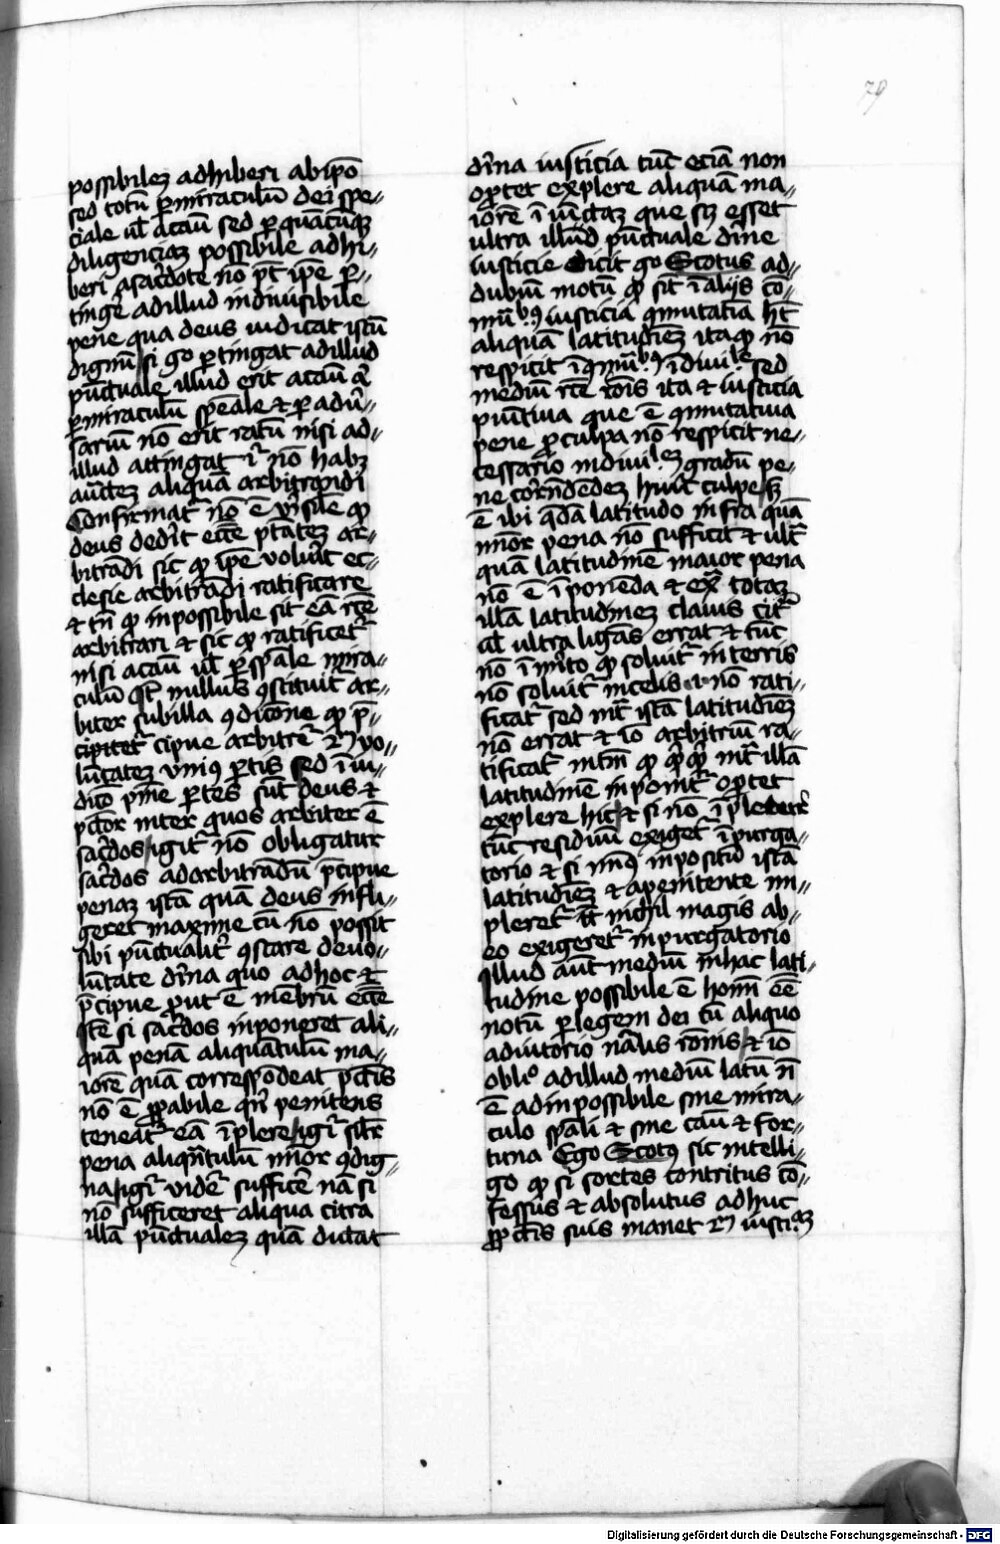 79
possibilez adhiberi ab ip̄o
sed totū p̱ miraculū dei spe-
ciale ul̄ a casu sed p̱ quācūq̨
diligenciaz possibilē adhi-
beri a sac̄dote nō pt̄ ip̄e p̱-
tinge᷒ ad illud indiuisibile
pene qua deus iudicat istū
dignū si g̊o p̱tingat ad illud
pūctuale illud erit a casu aut
p̱ miraculū sp̄eale et p̱ adu᷒-
sariū nō erit ratū nisi ad
illud attingat g̊ nō habz
auctez aliquā arbitrandi
Confirmat᷑ nō ē v᷒isile q̨
deus dederit ecc̄e ptātez ar-
bitrādi sic q̨ ip̄e voluit ec-
clesie arbitrādi ratificare
et tn̄ q̨ inpossibile sit eā rc̄e
arbitrari et sic q̨ ratificet᷑
nisi a casu ul̄ p̱ sp̄ale mira-
culū q̄ nullus ꝯstituit ar-
biter sub illa ꝯdicōne q̨ p̄-
cipitet᷑ cipue arbitre᷑ vo-
lūtatez vniꝰ p̱tis sed ī iu-
dicio pn̄īe p̱tes sūt deus et
pctōr inter quos arbiter ē
sac̄dos igit᷑ nō obligatur
sac̄dos ad arbitrandū p̄cipue
penaz istā quā deus infli-
geret maxime cū nō possit
sibi pūctualit᷒ ꝯstare de uo-
lūtate diuina quo ad hoc et
p̄cipue ꝓut ē mēbrū ecc̄e
Itē si sac̄dos inponeret ali-
quā penā aliquātulū ma-
iorē quā correspōdeat pctīs
nō ē ꝓbabile qn̄ penitens
teneat᷑ eā īplere igit᷑ silr̄
pena aliqn̄tulū minor ꝯdig-
na igit᷑ vidēt᷑ sufficē᷒ nā si
nō sufficeret aliqua citra
illā pūctualez quā dictat
diuina iusticia tūc eciā non
oportet explere aliquā ma-
iorē ī vindictaz que scꝫ esset
ultra illud pūctuale diuine
iusticie Dicit g̊o Scotus ad
dubiū motū q̨ sit ī alijs cō-
mūibꝰ iusticia ꝯmutatia hꝫ
aliquā latitudiēz ita q̨ nō
respicit ī ꝯmūibꝰ īdiuile sed
mediū rc̄e rōis ita et iusticia
punitiua que ē ꝯmutatiua
pene ꝓ culpa nō respicit ne-
cessario indiuilez gradū pe-
ne cor̄ndēdez huic culpe sꝫ
ē ibi q̄dā latitudo infra quā
minor pena nō sufficit et ult᷑
quā latitudinē maior pena
nō ē īponēda et ext᷑ totaz
illā latitudinez clauis cit᷑
ul̄ ultra ligās errat et tūc
nō īmēito q̨ soluit᷑ in terris
nō soluit᷑ in celis i. nō rati-
ficat᷑ sed int᷑ istā latitudiēz
nō errat et iō arbitriū ra-
tificat᷑ intm̄ q̨ q̄q̨ int᷑ illā
latitudinē inponit᷑ oportet
explere hic et si nō īpleret᷑
tūc residuū exiget᷑ ī purga-
torio et si minꝰ inpositū istā
latitudiēz et a penitente im-
pleret᷑ tn̄ nichil magis ab
eo exigeret᷑ in purgatorio
Illud aut mediū in hac lati-
tudine possibile ē hoīm eē
notū p̱ legem dei cū aliquo
adiutorio nālis rōnis et iō
obligo ad illud mediū latū n̄
ē ad inpossibile sine mira-
culo sp̄ali et sine casu et for-
tuna Ego Scotꝰ sic intelli-
go q̨ si sortes contritus cō-
fessus et absolutus adhuc
ꝓ pctīs suis manet iustic
Digitalisierung gefördert durch die Deutsche Forschungsgemeinschaft - DFG